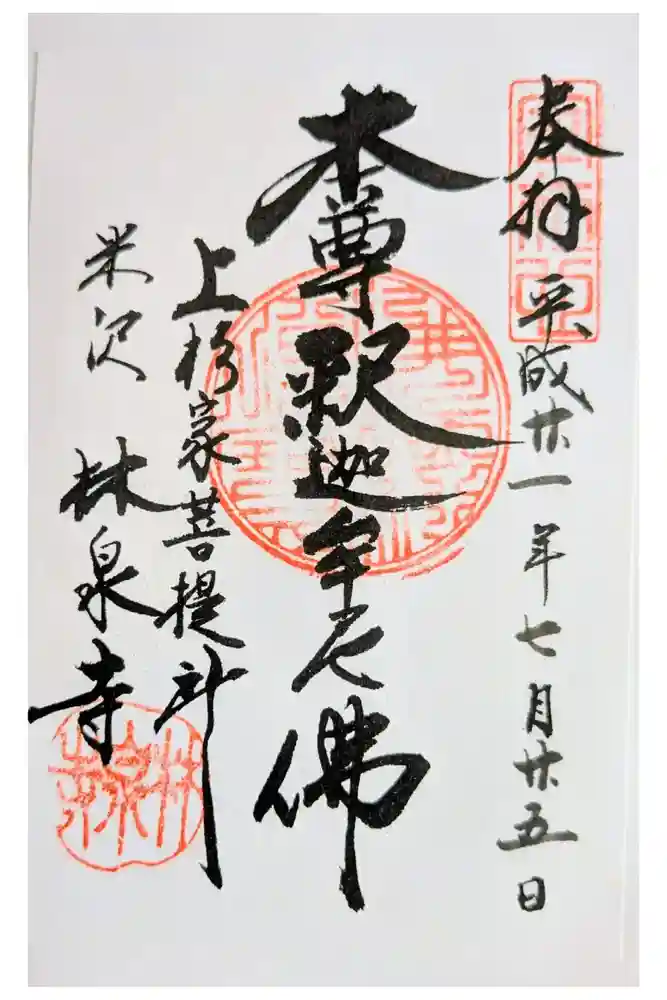 奉拝 平成廿一年七月廿五日
本尊釈迦牟尼佛
上杉家菩提所
米沢 林泉寺
林泉寺